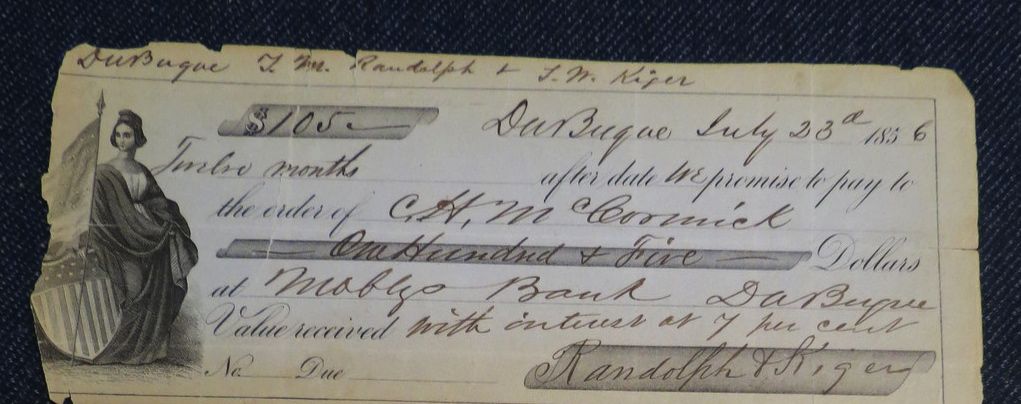 DuBuque T. M. Randolph & T. W. Kiger
$105 DuBuque July 23d 1856
Twelve months after date We promise to pay to
the order of C. H. McCormick
One Hundred & Five Dollars
at Mobleys Bank DuBuque
Value received with interest at 7 per cent
No. Due Randolph & Kiger